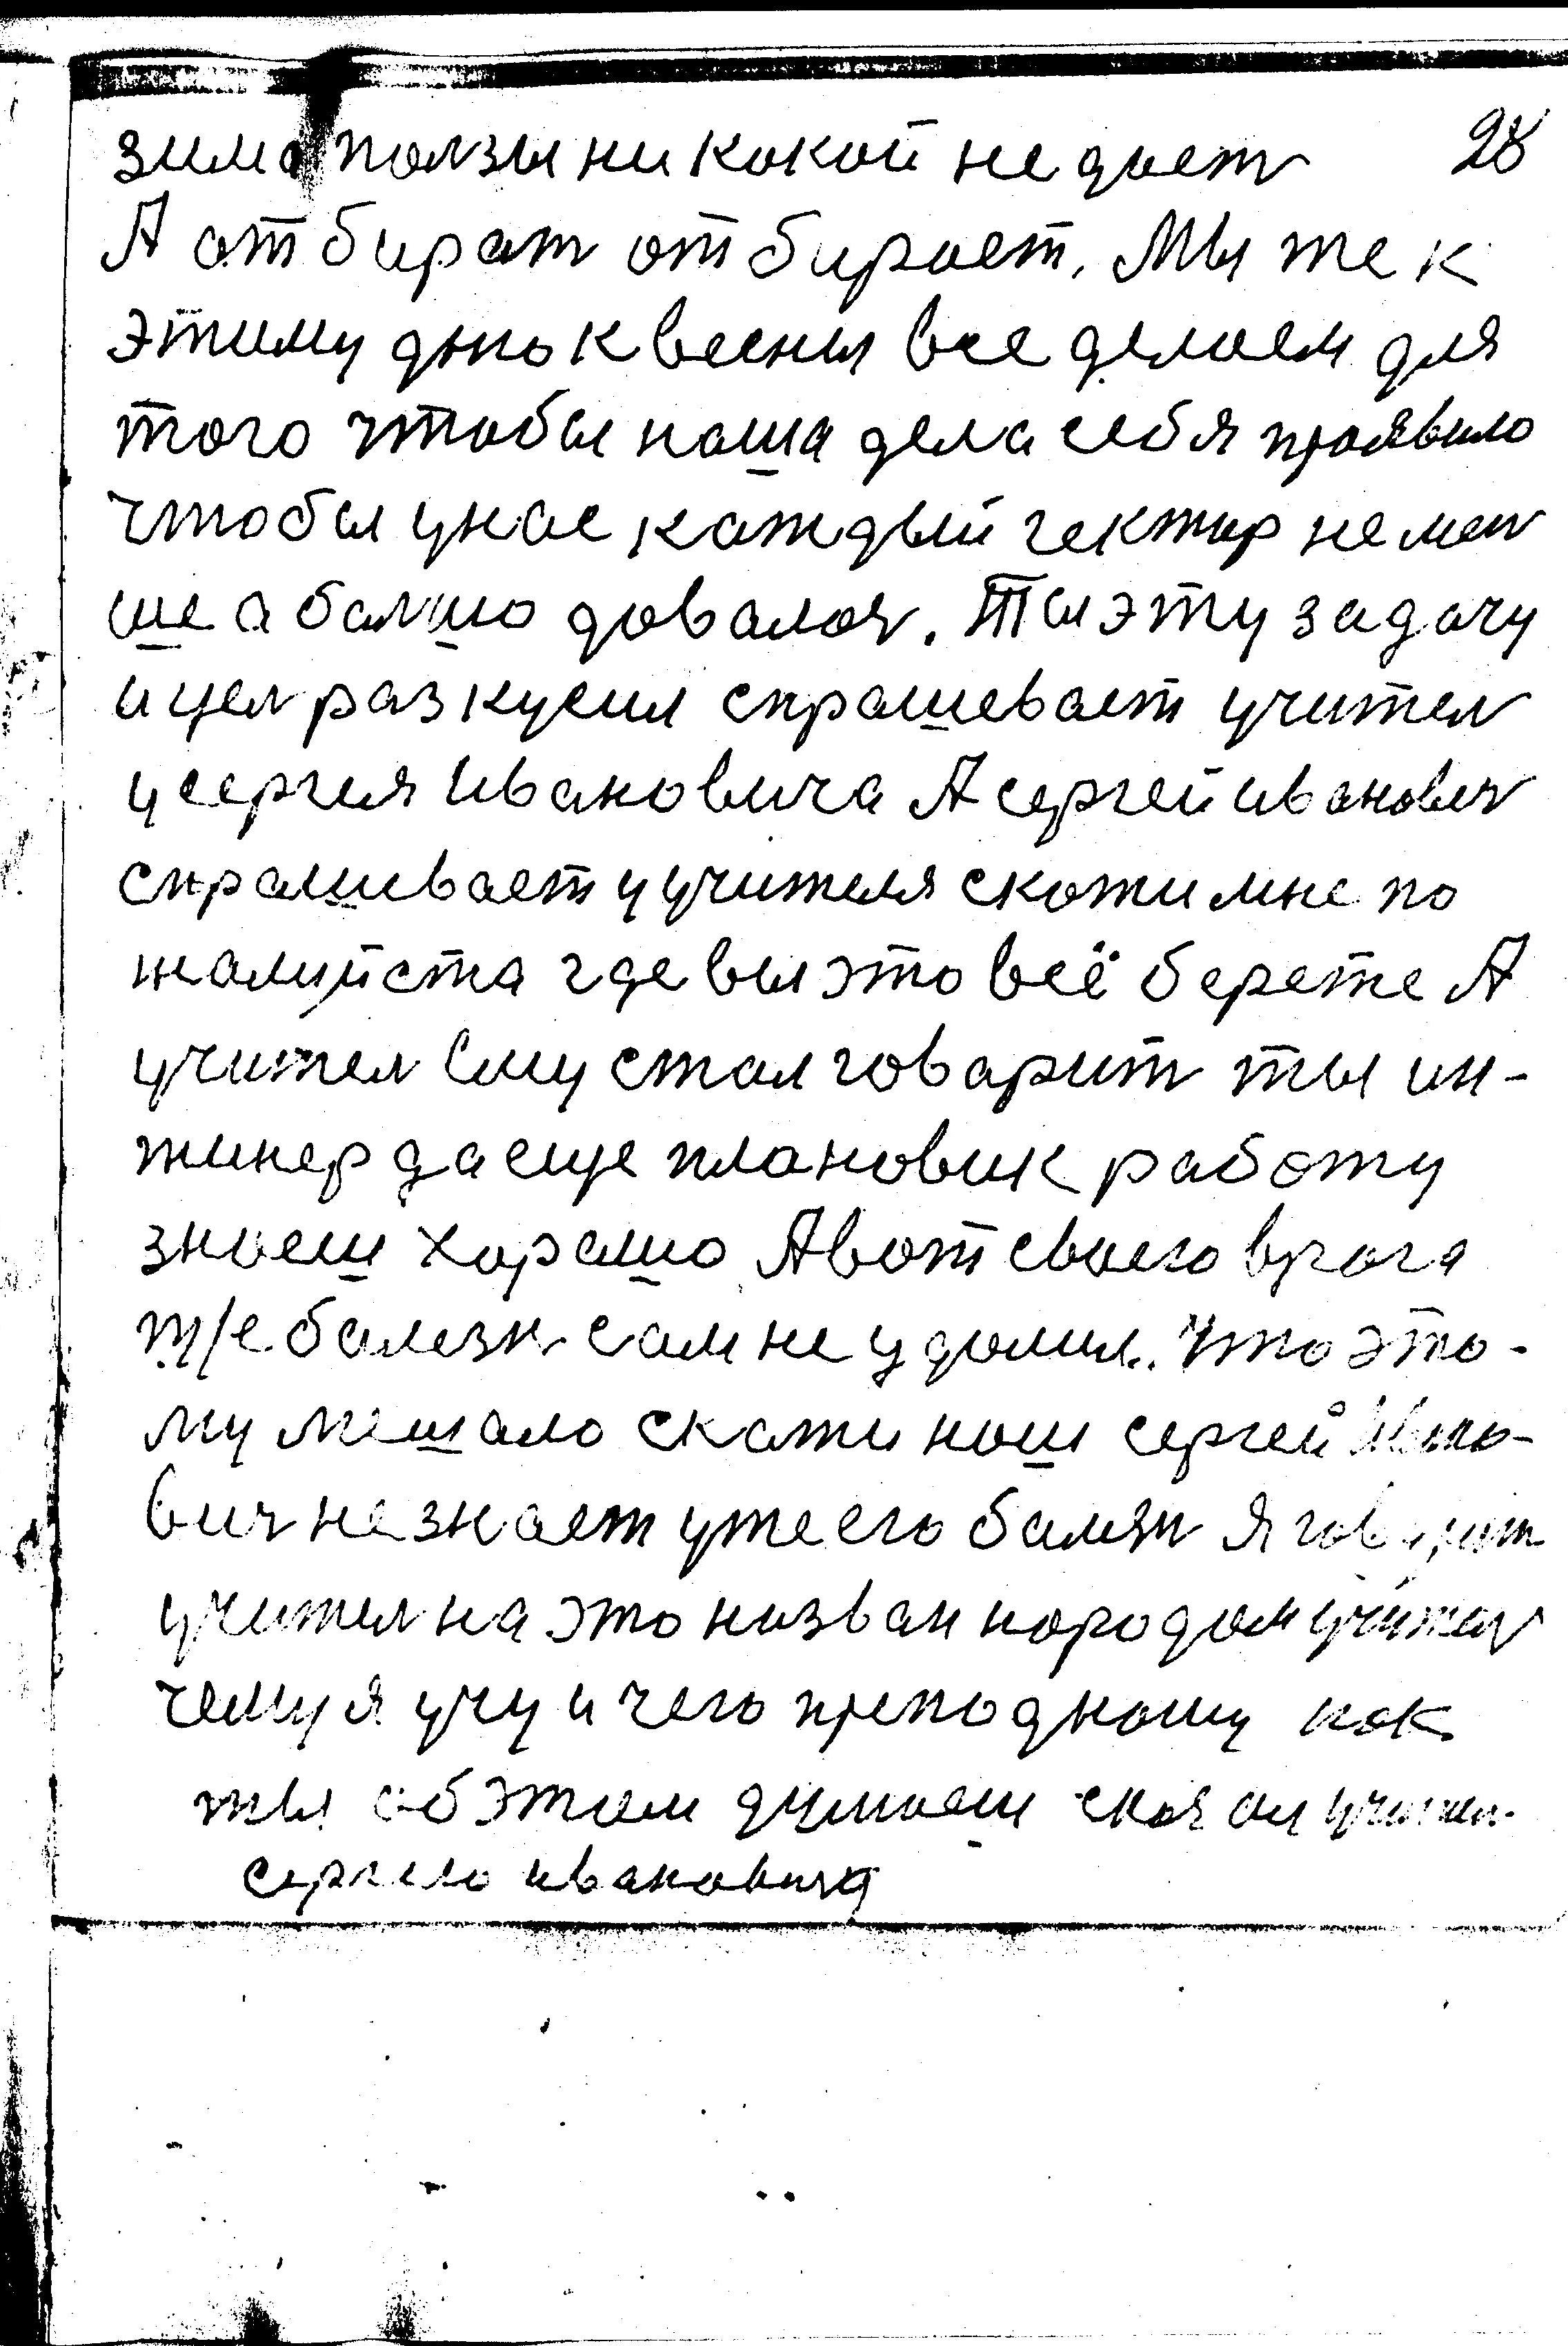 зима ползы ни какой не дает 28
А отбират отбирает. Мы же к
этиму дню к весны все делаем для
того чтобы наша дела себя проявило
чтобы унас каждый гектар не мен
ше а балшо давалоя. Ты эту задачу
и цел раз кусил спрашевает учител
у сергия Ивановича А сергей иванович
спрашивает у учителя скажи мне по
жалуйста где вы это всё бережe А
учител Ему стал говарит ты ин-
жинер да еще плановик работу
знаеш харашо А вот своего врага
т/е балезн сам не удалил. Что это-
му мешало скажи наш сергей Ивано-
вич не знает уже его балзн я говарит
учител на это назван народом учител
чему я учу и чего преподношу как
ты об этом думаеш сказал учител
сергею ивановича